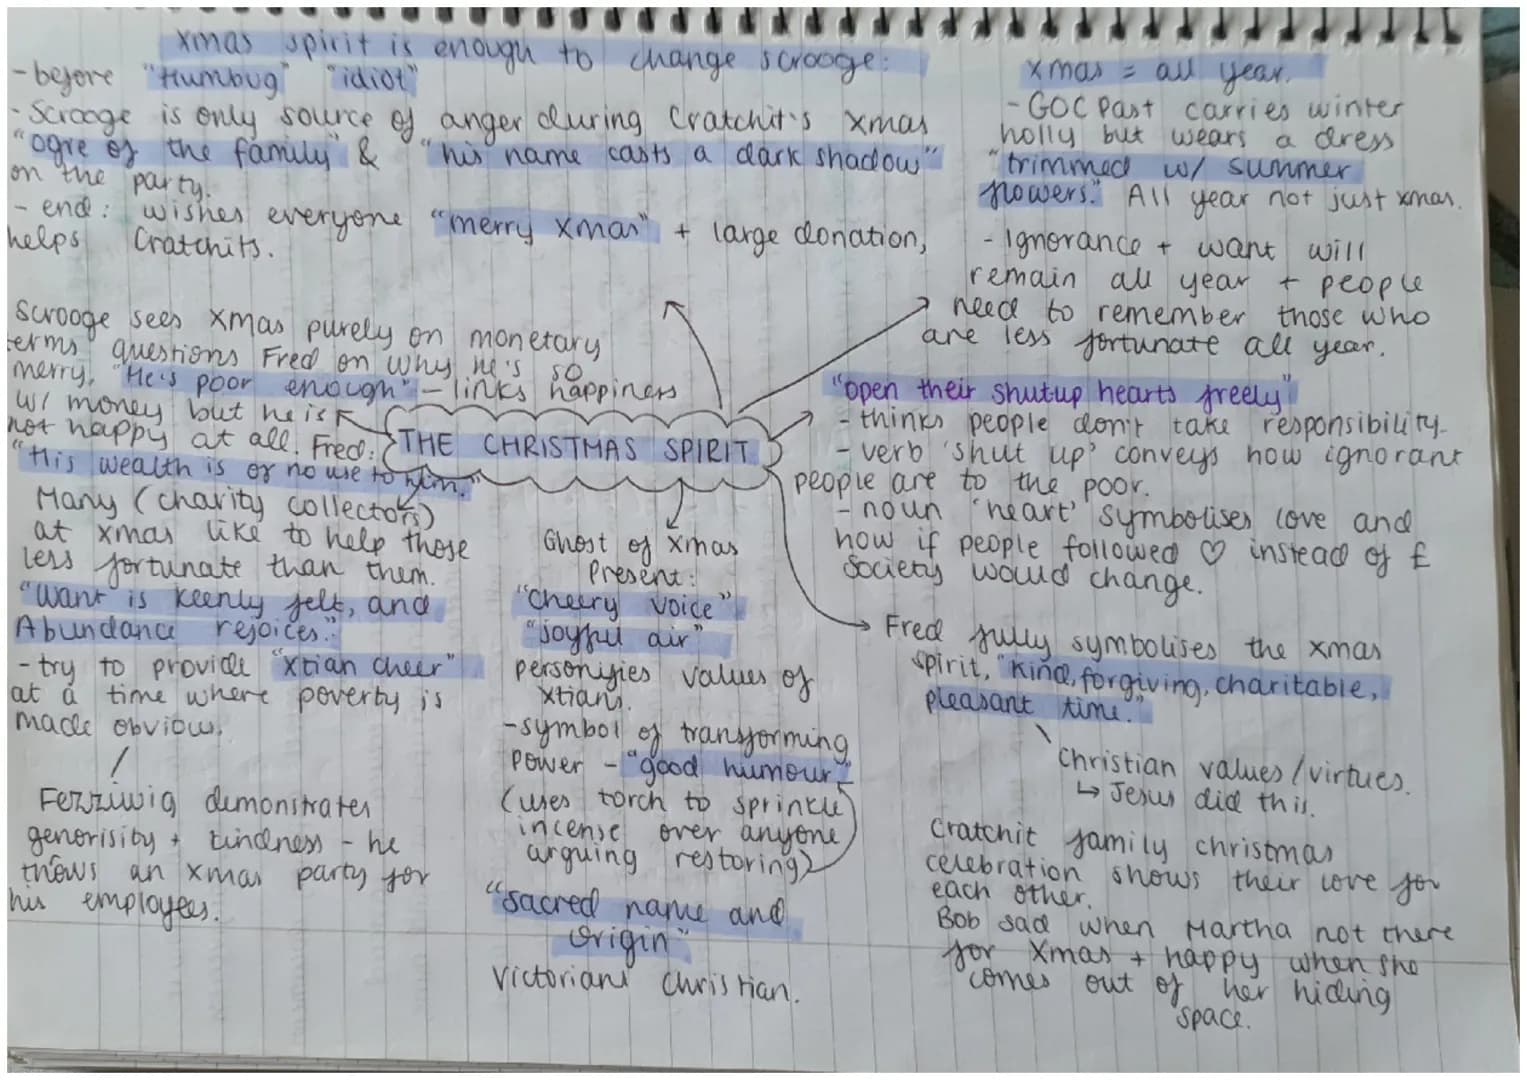 xmas spirit is enough to change scrooge:
- before "Humbug" "idiot"
- Scrooge is only source of anger during Cratchit's xmas
"ogre of the family" & "his name casts a dark shadow"
on the party.
- end: wishes everyone "merry xmas" + large donation,
helps Cratchits.
xmas = all year.
- GOC Past carries winter
holly but wears a dress
"trimmed w/ summer
flowers." All year not just xmas.
- Ignorance + want will
remain all year + people
need to remember those who
are less fortunate all year.
Scrooge sees xmas purely on monetary
terms questions Fred on why he's so
merry, "He's poor enough" - links happiness
w/ money but he is
not happy at all. Fred:
"His wealth is of no use to him."
THE CHRISTMAS SPIRIT
"open their shutup hearts freely"
- thinks people don't take responsibility.
- verb 'shut up' conveys how ignorant
people are to the poor.
- noun 'heart' symbolises love and
how if people followed ♡ instead of £
society would change.
Many (charity collectors)
at xmas like to help those
less fortunate than them.
"Want is keenly felt, and
Abundance rejoices."
- try to provide "xtian cheer"
at a time where poverty is
made obvious.
Fezziwig demonstrates
generisity + kindness - he
throws an xmas party for
his employees.
Ghost of xmas
Present:
"cheery voice"
"joyful air"
personifies values of
xtians.
- symbol of transforming
power - "good humour"
(uses torch to sprinkle
incense over anyone
arguing restoring)
"sacred name and
origin"
Victorians Christian.
Fred fully symbolises the xmas
spirit, "kind, forgiving, charitable,
pleasant time."
Christian values/virtues.
↳ Jesus did this.
Cratchit family christmas
celebration shows their love for
each other.
Bob sad when Martha not there
for Xmas + happy when she
comes out of her hiding
space.